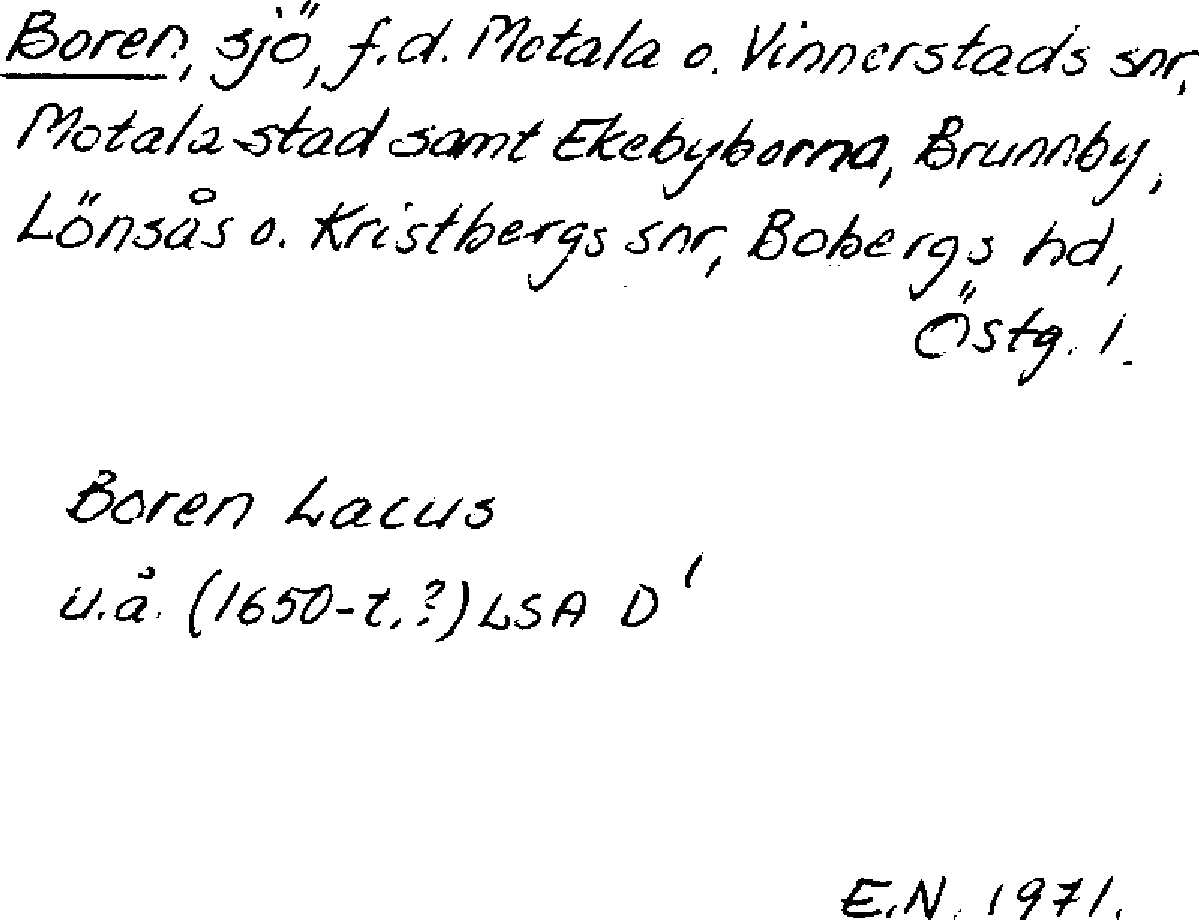 Boren, sjö, f.d. Motala o. Vinnerstads snr,
Motala stad samt Ekebyborna, Brunnby,
Lönsås o. Kristbergs snr, Bobergs hd,
Östg. l.
Boren Lacus
u.å. (1650-t.?) LSA D¹
E.N. 1971.